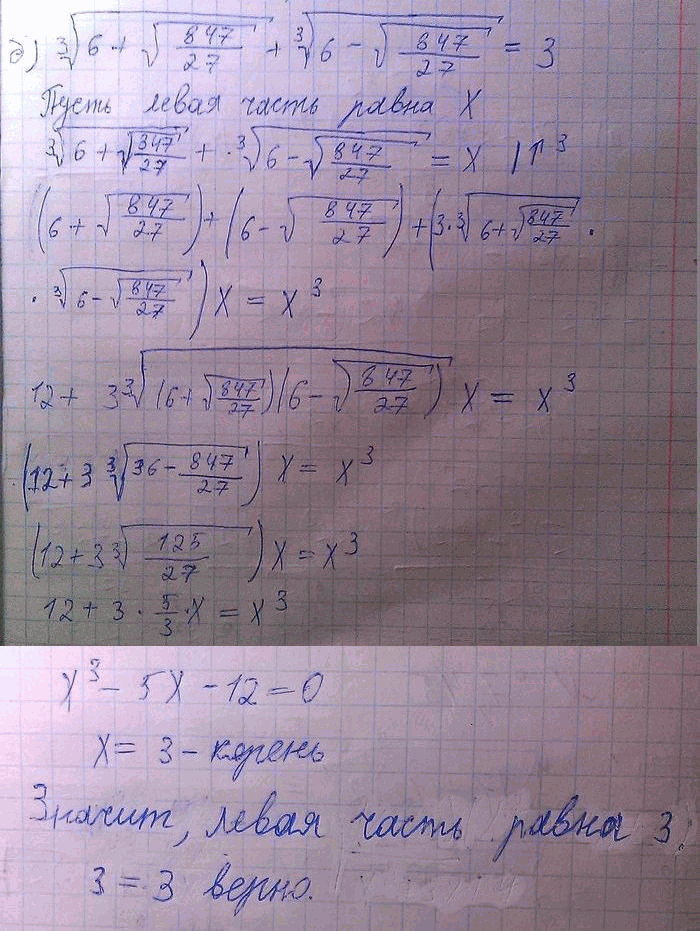 д) ∛(6 + √(847/27)) + ∛(6 − √(847/27)) = 3
Пусть левая часть равна X
∛(6 + √(847/27)) + ·∛(6 − √(847/27)) = X |↑³
(6 + √(847/27)) + (6 − √(847/27)) + (3·∛(6 + √(847/27)) ·
· ∛(6 − √(847/27))) X = X³
12 + 3∛((6 + √(847/27))(6 − √(847/27))) X = X³
(12 + 3∛(36 − 847/27)) X = X³
(12 + 3∛(125/27)) X = X³
12 + 3 · 5/3 · X = X³
X³ − 5X − 12 = 0
X = 3 − корень
Значит, левая часть равна 3.
3 = 3 верно.